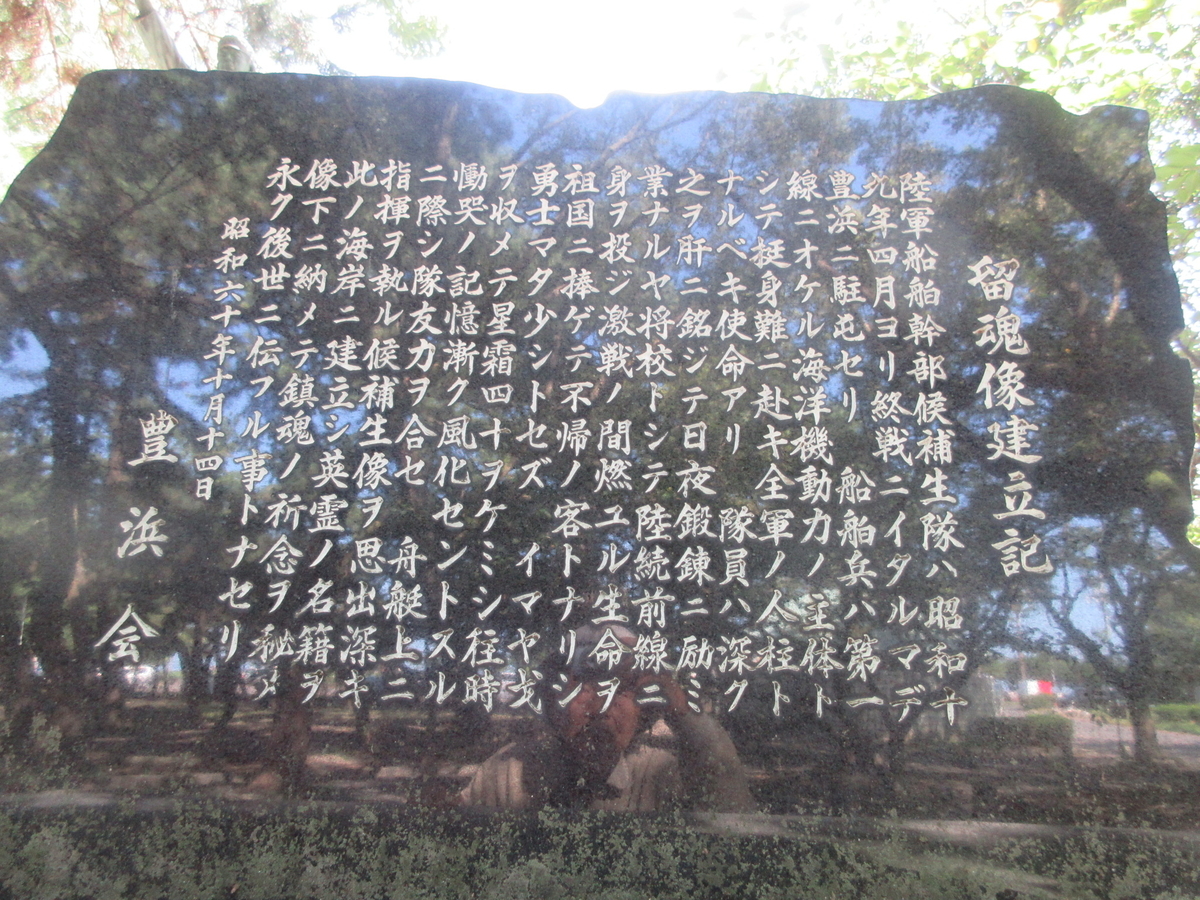 留魂像建立記
陸軍船舶幹部候補生隊ハ昭和十
九年四月ヨリ終戦ニイタルマデ
豊浜ニ駐屯セリ 船舶兵ハ第一
線ニオケル海洋機動力ノ主体ト
シテ挺身難ニ赴キ全軍ノ人柱ト
ナルベキ使命アリ 隊員ハ深ク
之ヲ肝ニ銘ジテ日夜鍛錬ニ励ミ
業ナルヤ将校トシテ陸続前線ニ
身ヲ投ジ激戦ノ間燃ユル生命ヲ
祖国ニ捧ゲテ不帰ノ客トナリシ
勇士マタ少シトセズ イマヤ戈
ヲ収メテ星霜四十ヲケミシ往時
慟哭ノ記憶漸ク風化セントスル
ニ際シ隊友力ヲ合セ 舟艇上ニ
指揮ヲ執ル候補生像ヲ思出深キ
此ノ海岸ニ建立シ英霊ノ名籍ヲ
像下ニ納メテ鎮魂ノ祈念ヲ秘メ
永ク後世ニ伝フル事トナセリ
昭和六十年十月十四日
豊浜会